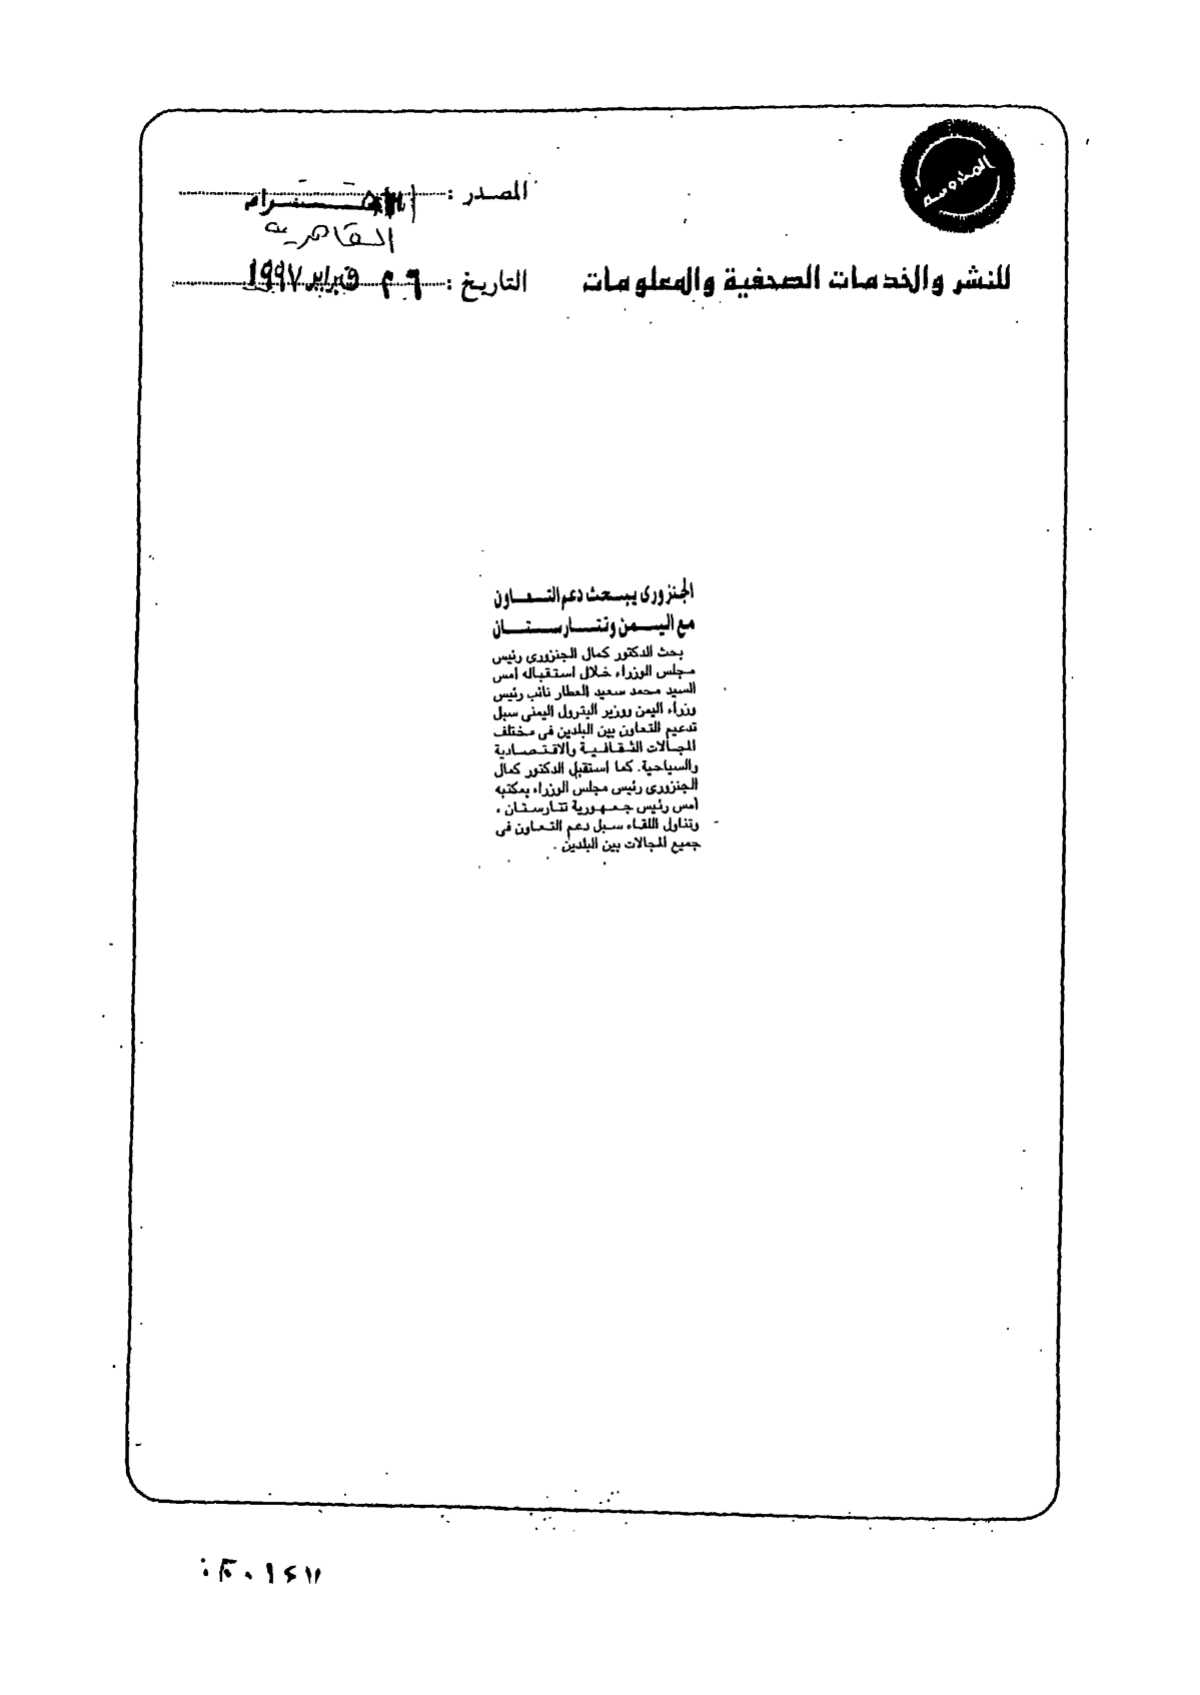 المحروسة
المصدر :
القاهرية
للنشر والخدمات الصحفية والمعلومات
التاريخ : فبراير ١٩٩٧
الجنزورى يبحث دعم التعاون
مع اليمن وتتارستان
بحث الدكتور كمال الجنزورى رئيس
مجلس الوزراء خلال استقباله أمس
السيد محمد سعيد العطار نائب رئيس
وزراء اليمن ووزير البترول اليمنى سبل
تدعيم التعاون بين البلدين فى مختلف
المجالات الثقافية والاقتصادية
والسياحية. كما استقبل الدكتور كمال
الجنزورى رئيس مجلس الوزراء بمكتبه
أمس رئيس جمهورية تتارستان .
وتناول اللقاء سبل دعم التعاون فى
جميع المجالات بين البلدين .